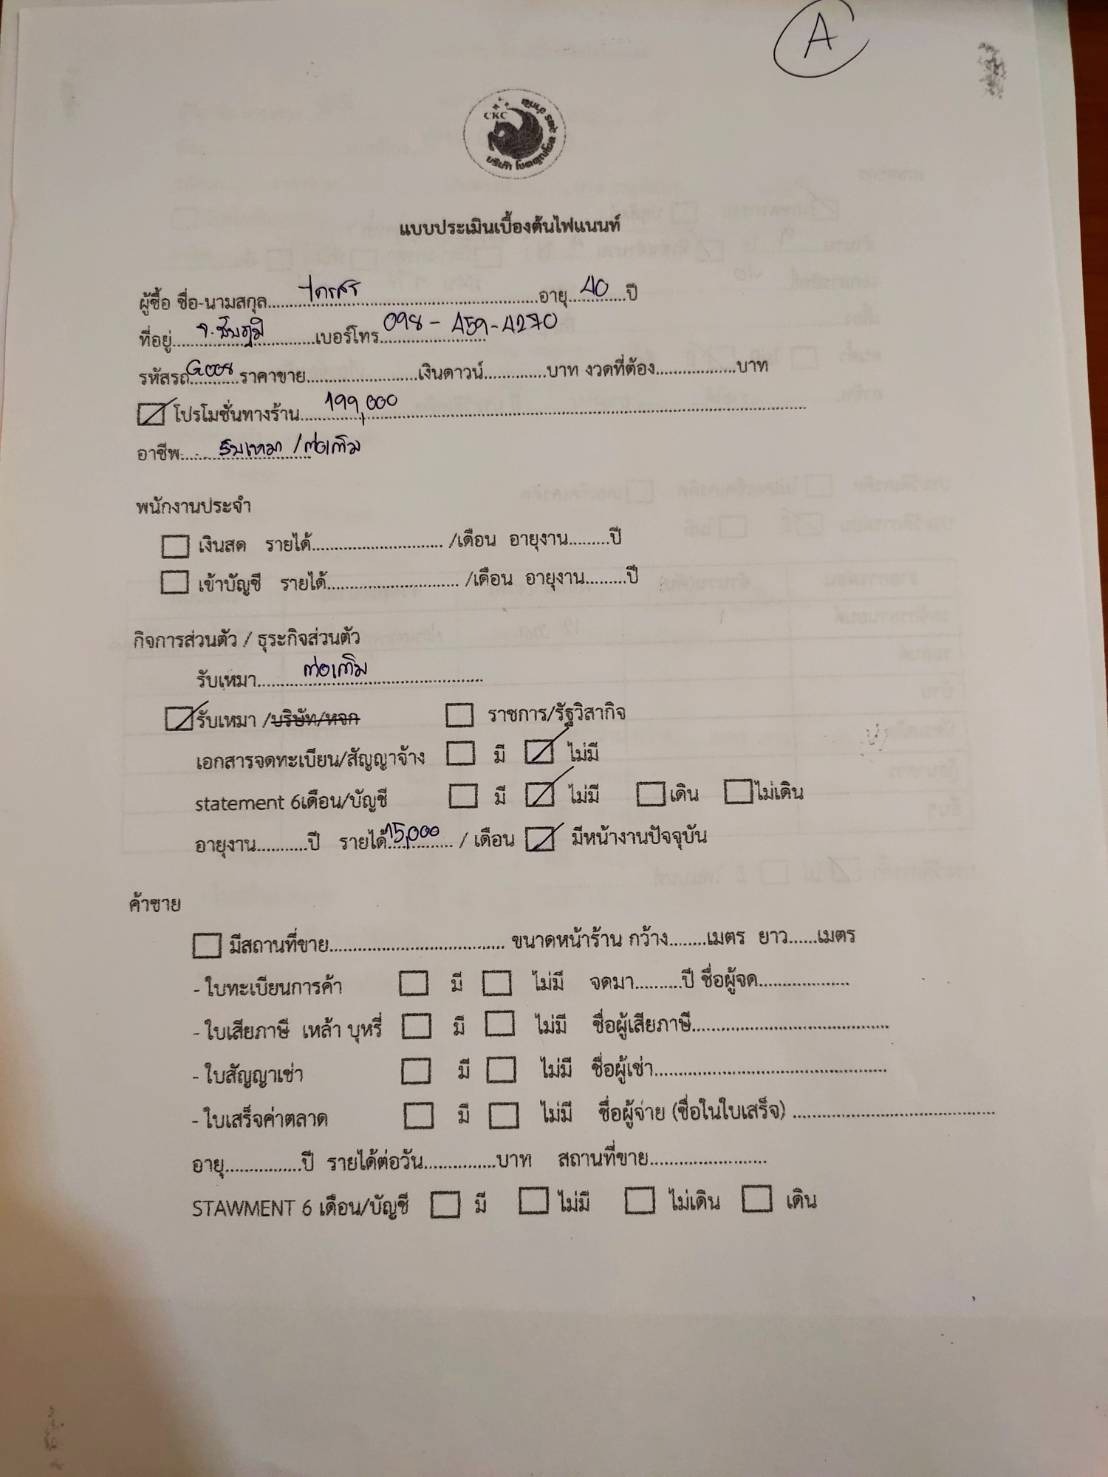 A
CKC
แบบประเมินเบื้องต้นไฟแนนท์
ผู้ซื้อ ชื่อ-นามสกุล....ไกรศร....อายุ...40...ปี
ที่อยู่....จ.ชัยภูมิ....เบอร์โทร...098-459-4270
รหัสรถ...G008...ราคาขาย.......เงินดาวน์.......บาท งวดที่ต้อง.......บาท
☑ โปรโมชั่นทางร้าน....199,000....
อาชีพ....รับเหมา / ต่อเติม
พนักงานประจำ
☐ เงินสด รายได้......./เดือน อายุงาน.......ปี
☐ เข้าบัญชี รายได้......./เดือน อายุงาน.......ปี
กิจการส่วนตัว / ธุระกิจส่วนตัว
รับเหมา....ต่อเติม....
☑ รับเหมา /บริษัท/หจก ☐ ราชการ/รัฐวิสากิจ
เอกสารจดทะเบียน/สัญญาจ้าง ☐ มี ☑ ไม่มี
statement 6เดือน/บัญชี ☐ มี ☑ ไม่มี ☐ เดิน ☐ ไม่เดิน
อายุงาน.......ปี รายได้..15,000.. / เดือน ☑ มีหน้างานปัจจุบัน
ค้าขาย
☐ มีสถานที่ขาย....... ขนาดหน้าร้าน กว้าง.......เมตร ยาว......เมตร
- ใบทะเบียนการค้า ☐ มี ☐ ไม่มี จดมา.......ปี ชื่อผู้จด.......
- ใบเสียภาษี เหล้า บุหรี่ ☐ มี ☐ ไม่มี ชื่อผู้เสียภาษี.......
- ใบสัญญาเช่า ☐ มี ☐ ไม่มี ชื่อผู้เช่า.......
- ใบเสร็จค่าตลาด ☐ มี ☐ ไม่มี ชื่อผู้จ่าย (ชื่อในใบเสร็จ) .......
อายุ.......ปี รายได้ต่อวัน.......บาท สถานที่ขาย.......
STAWMENT 6 เดือน/บัญชี ☐ มี ☐ ไม่มี ☐ ไม่เดิน ☐ เดิน